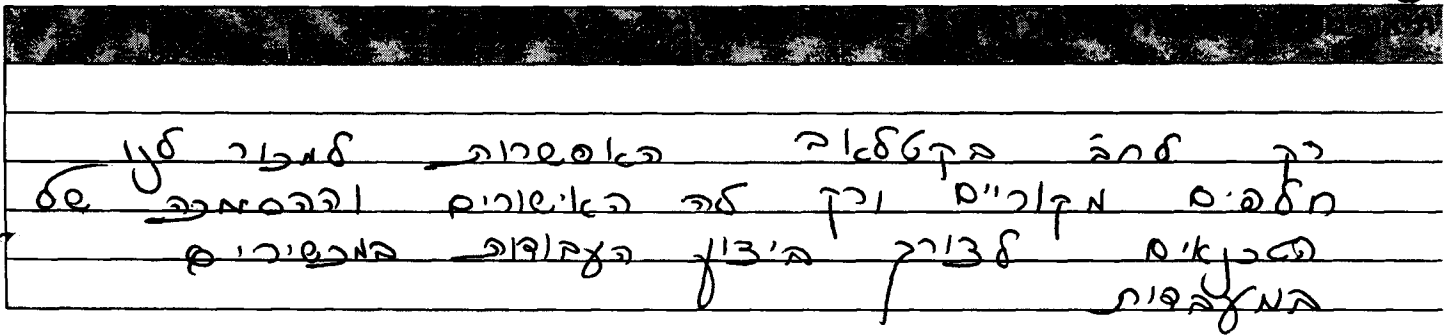 רק לחב' בקטלאב האפשרות למכור לנו
חלפים מקוריים ורק לה האישורים וההסמכה של
הטכנאים לצורך ביצוע העבודות במכשירים
במעבדות